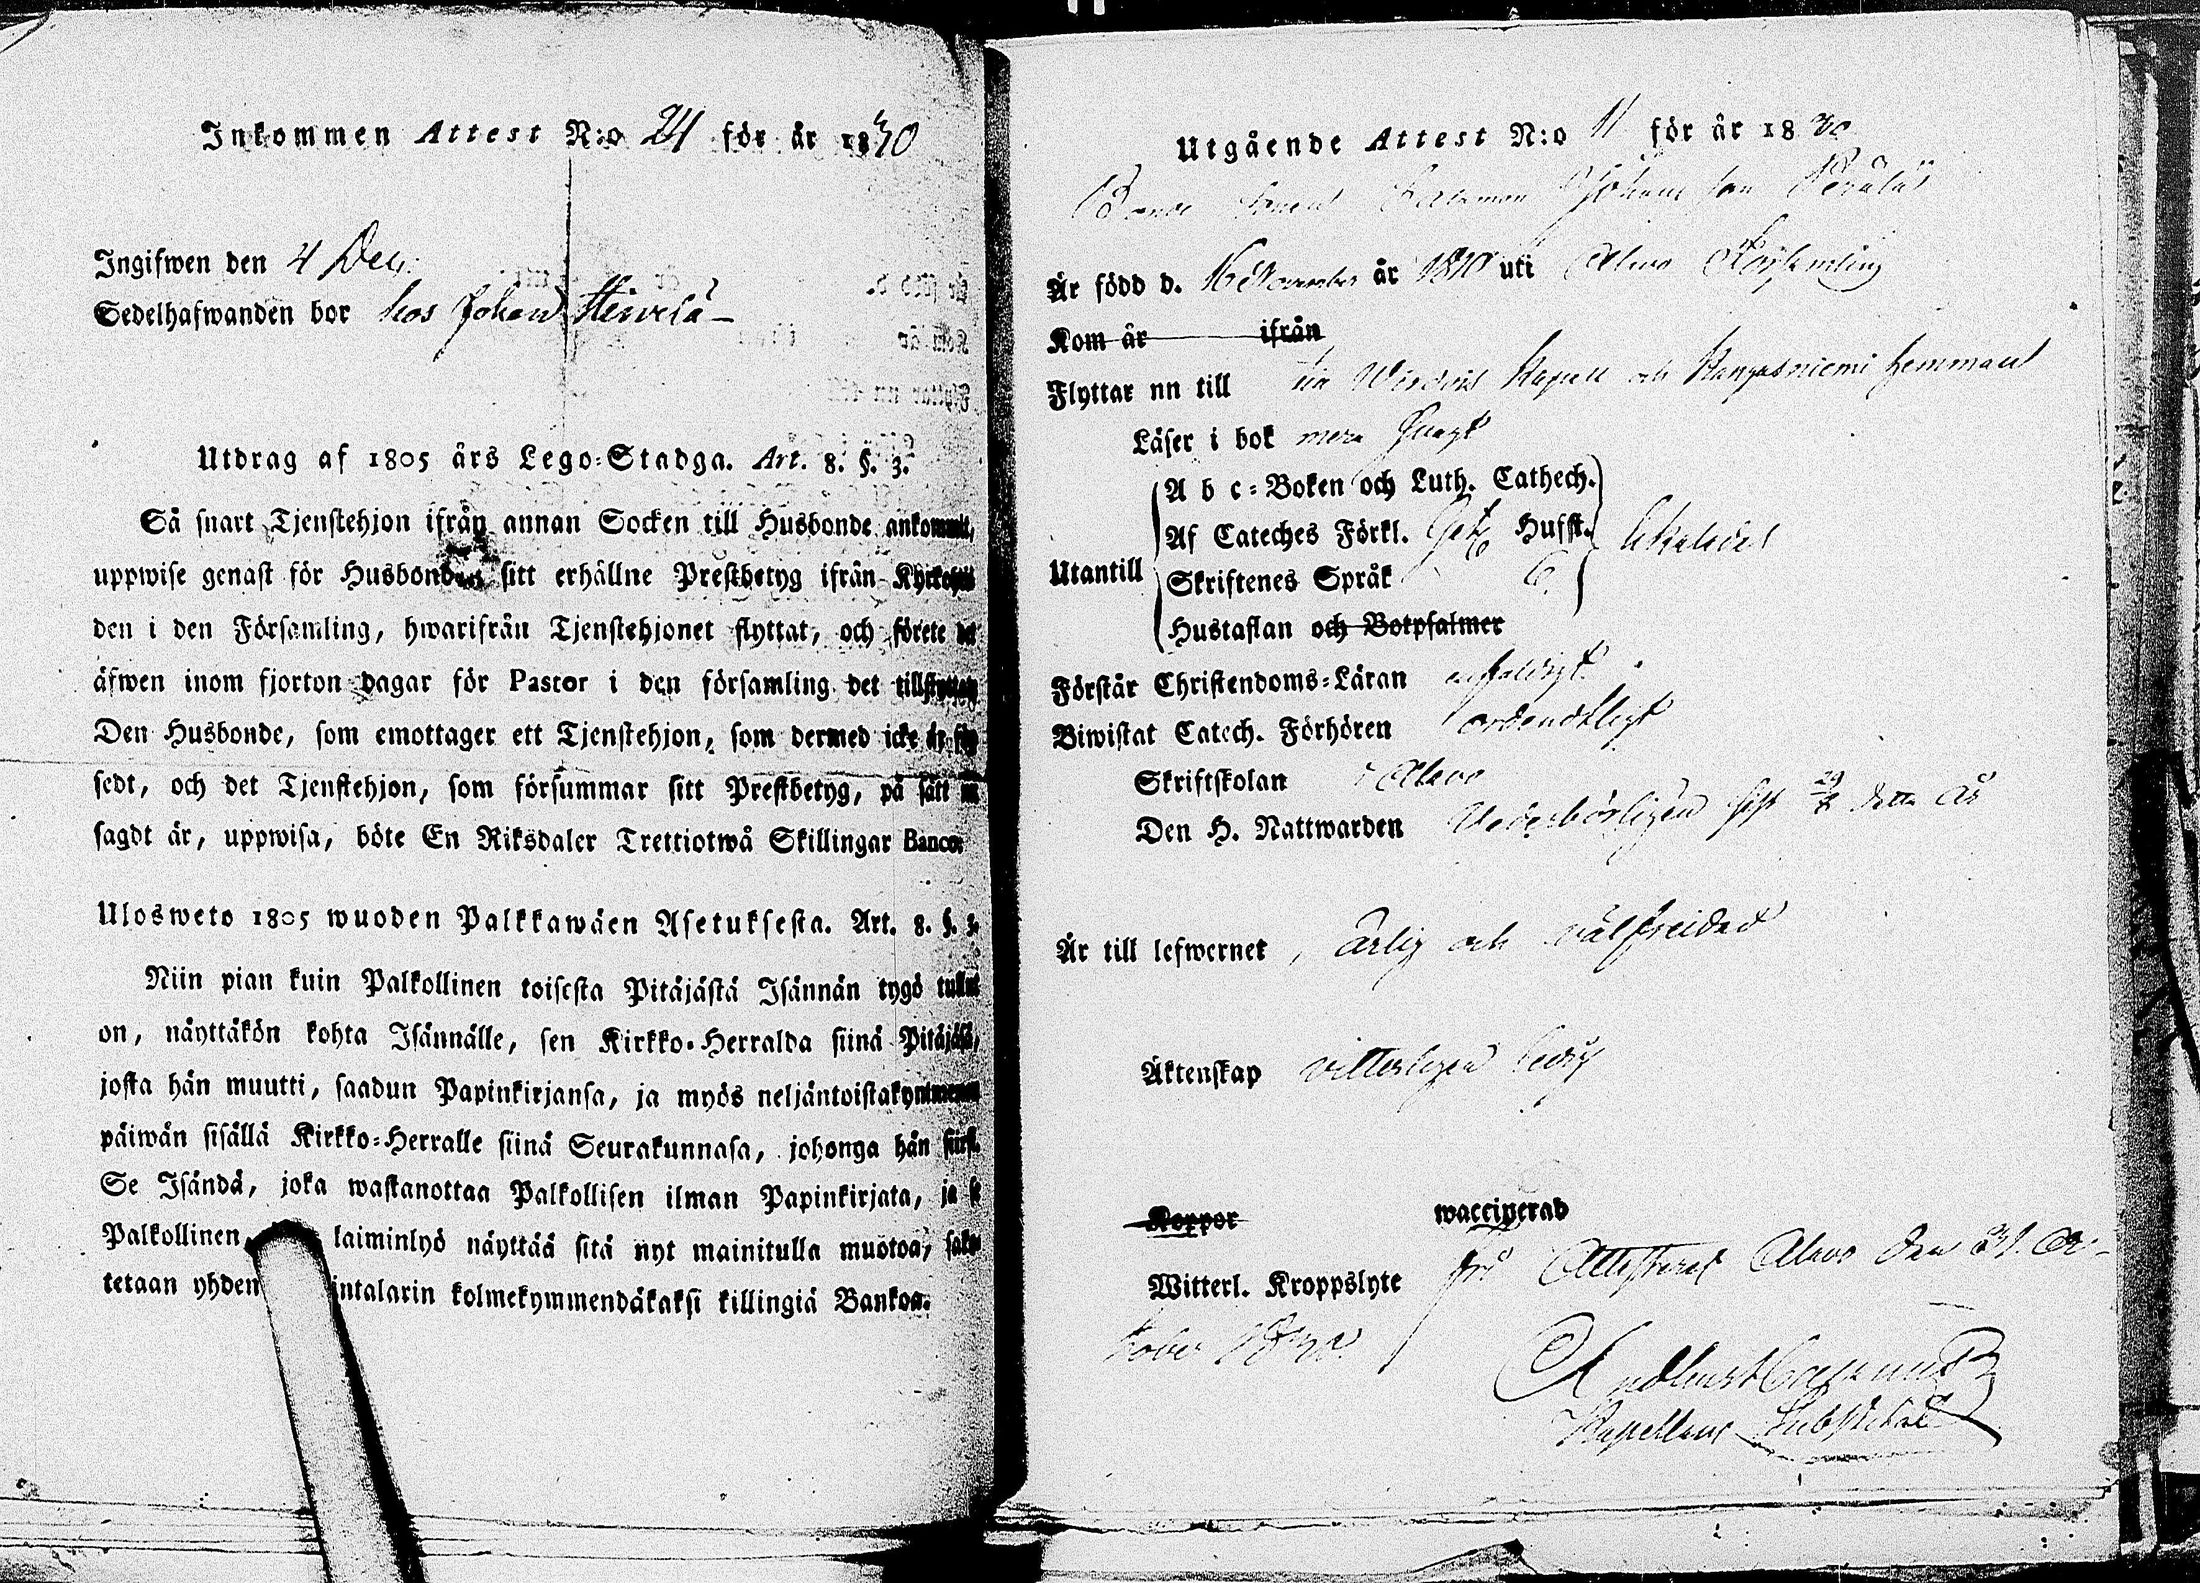 Inkommen Attest N:o 21 för år 1830
Ingifwen den 4 Dec:
Sedelhafwanden bor hos Johan Hirvelä
Utdrag af 1805 års Lego-Stadga. Art. 8. §. 3.
Så snart Tjenstehjon ifrån annan Socken till Husbonde ankommit,
uppwise genast för Husbonden sitt erhållne Prestbetyg ifrån
den i den Församling, hwarifrån Tjenstehjonet flyttat, och förete det
äfwen inom fjorton dagar för Pastor i den församling det
Den Husbonde, som emottager ett Tjenstehjon, som dermed icke är
sedt, och det Tjenstehjon, som försummar sitt Prestbetyg, på sätt
sagdt är, uppwisa, böte En Riksdaler Trettiotwå Skillingar Banco.
Ulosweto 1805 wuoden Palkkawäen Asetuksesta. Art. 8. §. 3.
Niin pian kuin Palkollinen toisesta Pitäjästä Isännän tygö tullut
on, näyttäkön kohta Isännälle, sen Kirkko-Herralda siinä Pitäjäsä,
josta hän muutti, saadun Papinkirjansa, ja myös neljäntoistakymmenen
päiwän sisällä Kirkko-Herralle siinä Seurakunnasa, johonga hän
Se Isändä, joka wastanottaa Palkollisen ilman Papinkirjata, ja se
Palkollinen, laiminlyö näyttää sitä nyt mainitulla muotoa, sako
tetaan yhden intalarin kolmekymmendäkaksi killingiä Bankoa.
Utgående Attest N:o 11 för år 1830
Bonde Sonen Salomon Johansson Perälä
Är född d. 16 November år 1810 uti Alavo Församling
Kom år ifrån
Flyttar nn till till Wirdois Kapell och Kangasniemi hemman
Läser i bok
A b c-Boken och Luth. Cathech.
Af Cateches Förkl. Hufst.
Utantill
Skriftenes Språk
Hustaflan och Botpsalmer
Förstår Christendoms-Läran enfaldigt
Biwistat Catech. Förhören ordendtligt
Skriftskolan i Alavo
Den H. Nattwarden Vederbörligen sist detta år
Är till lefwernet, ärlig och välfreidad
Äktenskap vitterligen ledig
Koppor waccinerad
Witterl. Kroppslyte fri Attesteras Alavo den 31. Oc-
tober 1830.
Kapellans Substitut